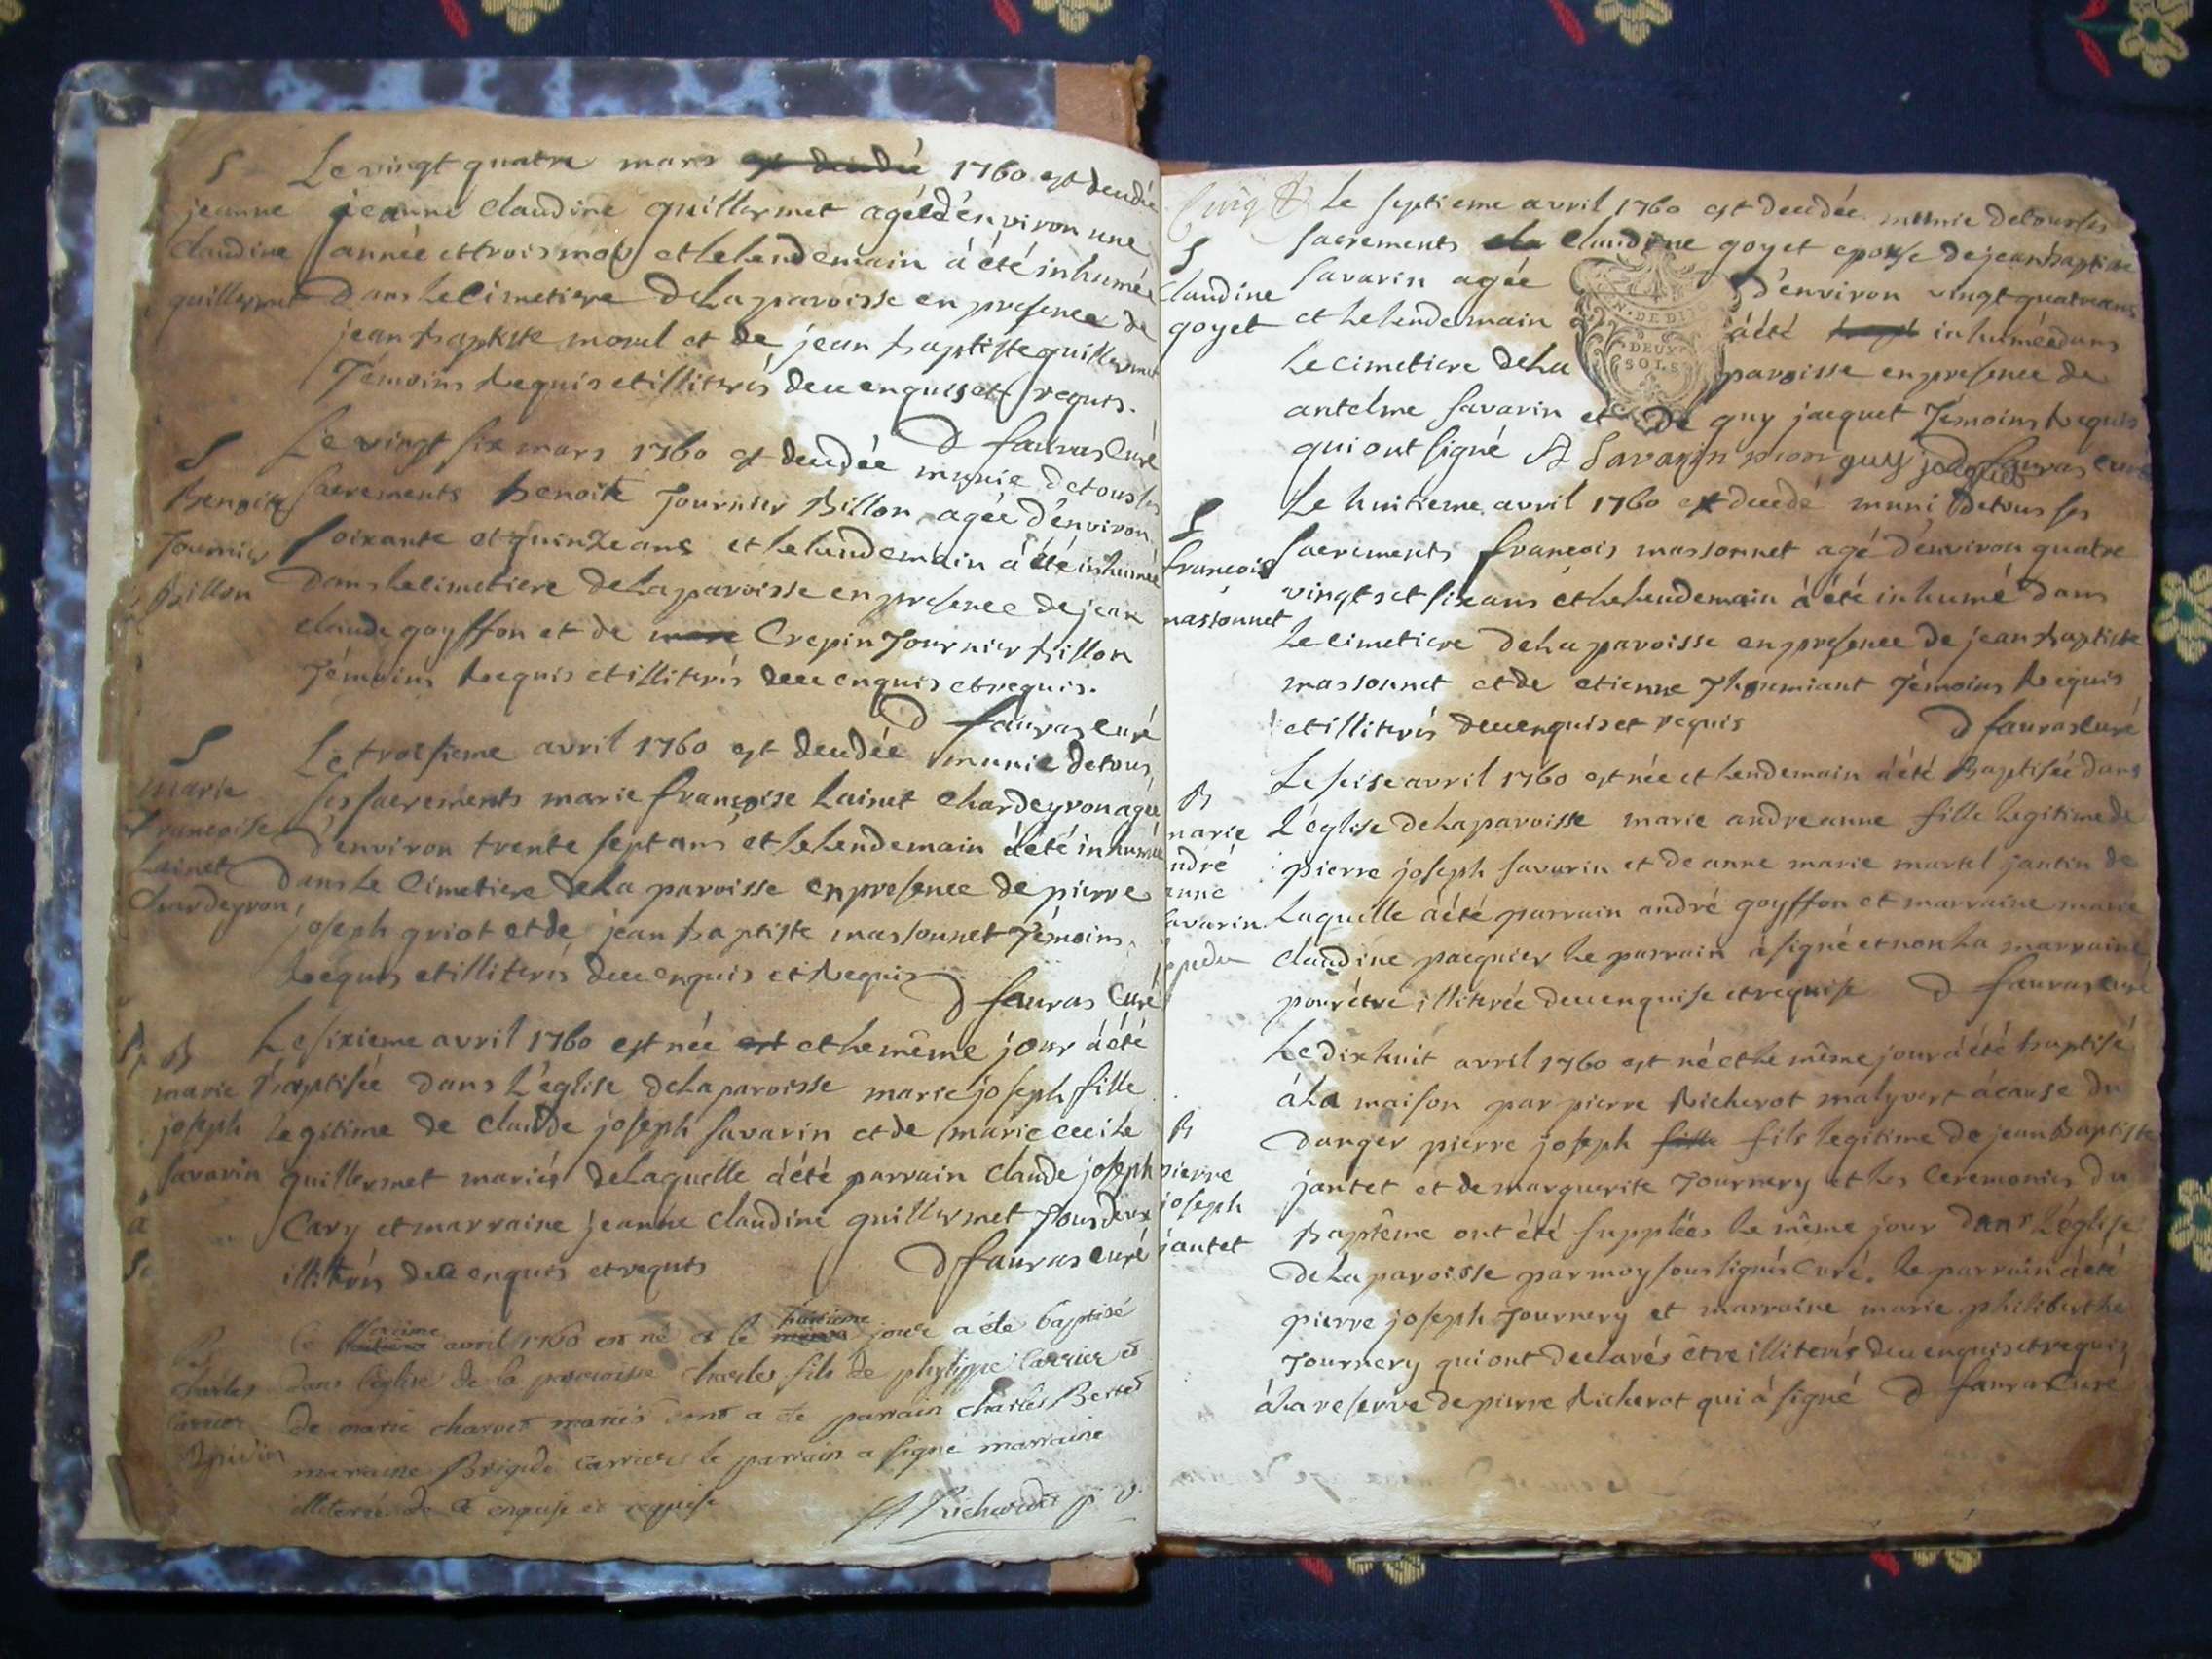 S
jeanne
claudine
guillermet
Le vingt quatre mars est decedée 1760 est decedée
jeanne claudine guillermet agée d'environ une
année et trois mois et le lendemain à été inhumée
dans le cimetiere de la paroisse en presence de
jean baptiste morel et de jean baptiste guillermet
Témoins requis et illiterés de ce enquis et requis.
D fauras curé
S
Benoite
Tournier
Billon
Le vingt six mars 1760 est decedée munie de tous les
sacrements benoite Tournier Billon agée d'environ
soixante et quinze ans et le lendemain à été inhumée
dans le cimetiere de la paroisse en presence de jean
claude goyffon et de Crepin Tournier billon
Témoins requis et illiterés de ce enquis et requis.
D fauras curé
S
marie
françoise
Lainet
Chardeyron
Le troisieme avril 1760 est decedée munie de tous
ses sacrements marie françoise Lainet Chardeyron agée
d'environ trente sept ans et le lendemain à été inhumée
dans le Cimetiere de La paroisse en presence de pierre
joseph griot et de jean baptiste massonnet Témoins
requis et illiterés de ce enquis et requis
D fauras Curé
B
marie
joseph
savarin
Le sixieme avril 1760 est née est et le même jour à été
baptisée dans L'église de La paroisse marie joseph fille
Legitime de claude joseph savarin et de marie cecile
guillermet mariés de Laquelle à été parrain claude joseph
Cary et marraine jeanne claudine guillermet Tous deux
illiterés de ce enquis et requis
D fauras curé
B
charles
Carrier
avril 1760 est né et le jour a été baptisé
dans l'église de la paroisse charles fils de phylippe Carrier et
de marie charvet mariés dont a été parrain charles Bertet
marraine Brigide Carrier le parrain a signé marraine
illiterée de ce enquise et requise
Cinq
S
Claudine
goyet
Le septieme avril 1760 est decedée munie de tous ses
sacrements Claudine goyet epouse de jean baptiste
savarin agée d'environ vingt quatre ans
et le lendemain à été inhumée dans
Le cimetiere de La paroisse en presence de
antelme savarin et de guy jacquet Témoins requis
qui ont signé A Savarin guy jacquet D fauras curé
GEN. DE DIJ
DEUX
SOLS
S
françois
massonnet
Le huitieme avril 1760 est decedé muni de tous ses
sacrements françois massonnet agé d'environ quatre
vingts et six ans et le lendemain à été inhumé dans
Le cimetiere de La paroisse en presence de jean baptiste
massonnet et de etienne Thomiant Témoins requis
et illiterés de ce enquis et requis D fauras curé
B
marie
andré
anne
savarin
Le seise avril 1760 est née et lendemain à été Baptisée dans
L'église de La paroisse marie andre anne fille Legitime de
pierre joseph savarin et de anne marie martel jantin de
Laquelle à été parrain andré goyffon et marraine marie
claudine pacquier Le parrain à signé et non La marraine
pour être illiterée de ce enquise et requise D fauras curé
B
pierre
joseph
jantet
Le dix huit avril 1760 est né et Le même jour à été baptisé
à La maison par pierre Richerot malyvert à cause du
danger pierre joseph fille fils legitime de jean Baptiste
jantet et de marguerite Tournery et Les Ceremonies du
Baptême ont été supplées Le même jour dans L'église
de La paroisse par moy sous signés Curé. Le parrain à été
pierre joseph Tournery et marraine marie philiberthe
Tournery qui ont declarés être illiterés de ce enquis et requis
à La reserve de pierre Richerot qui à signé D fauras Curé